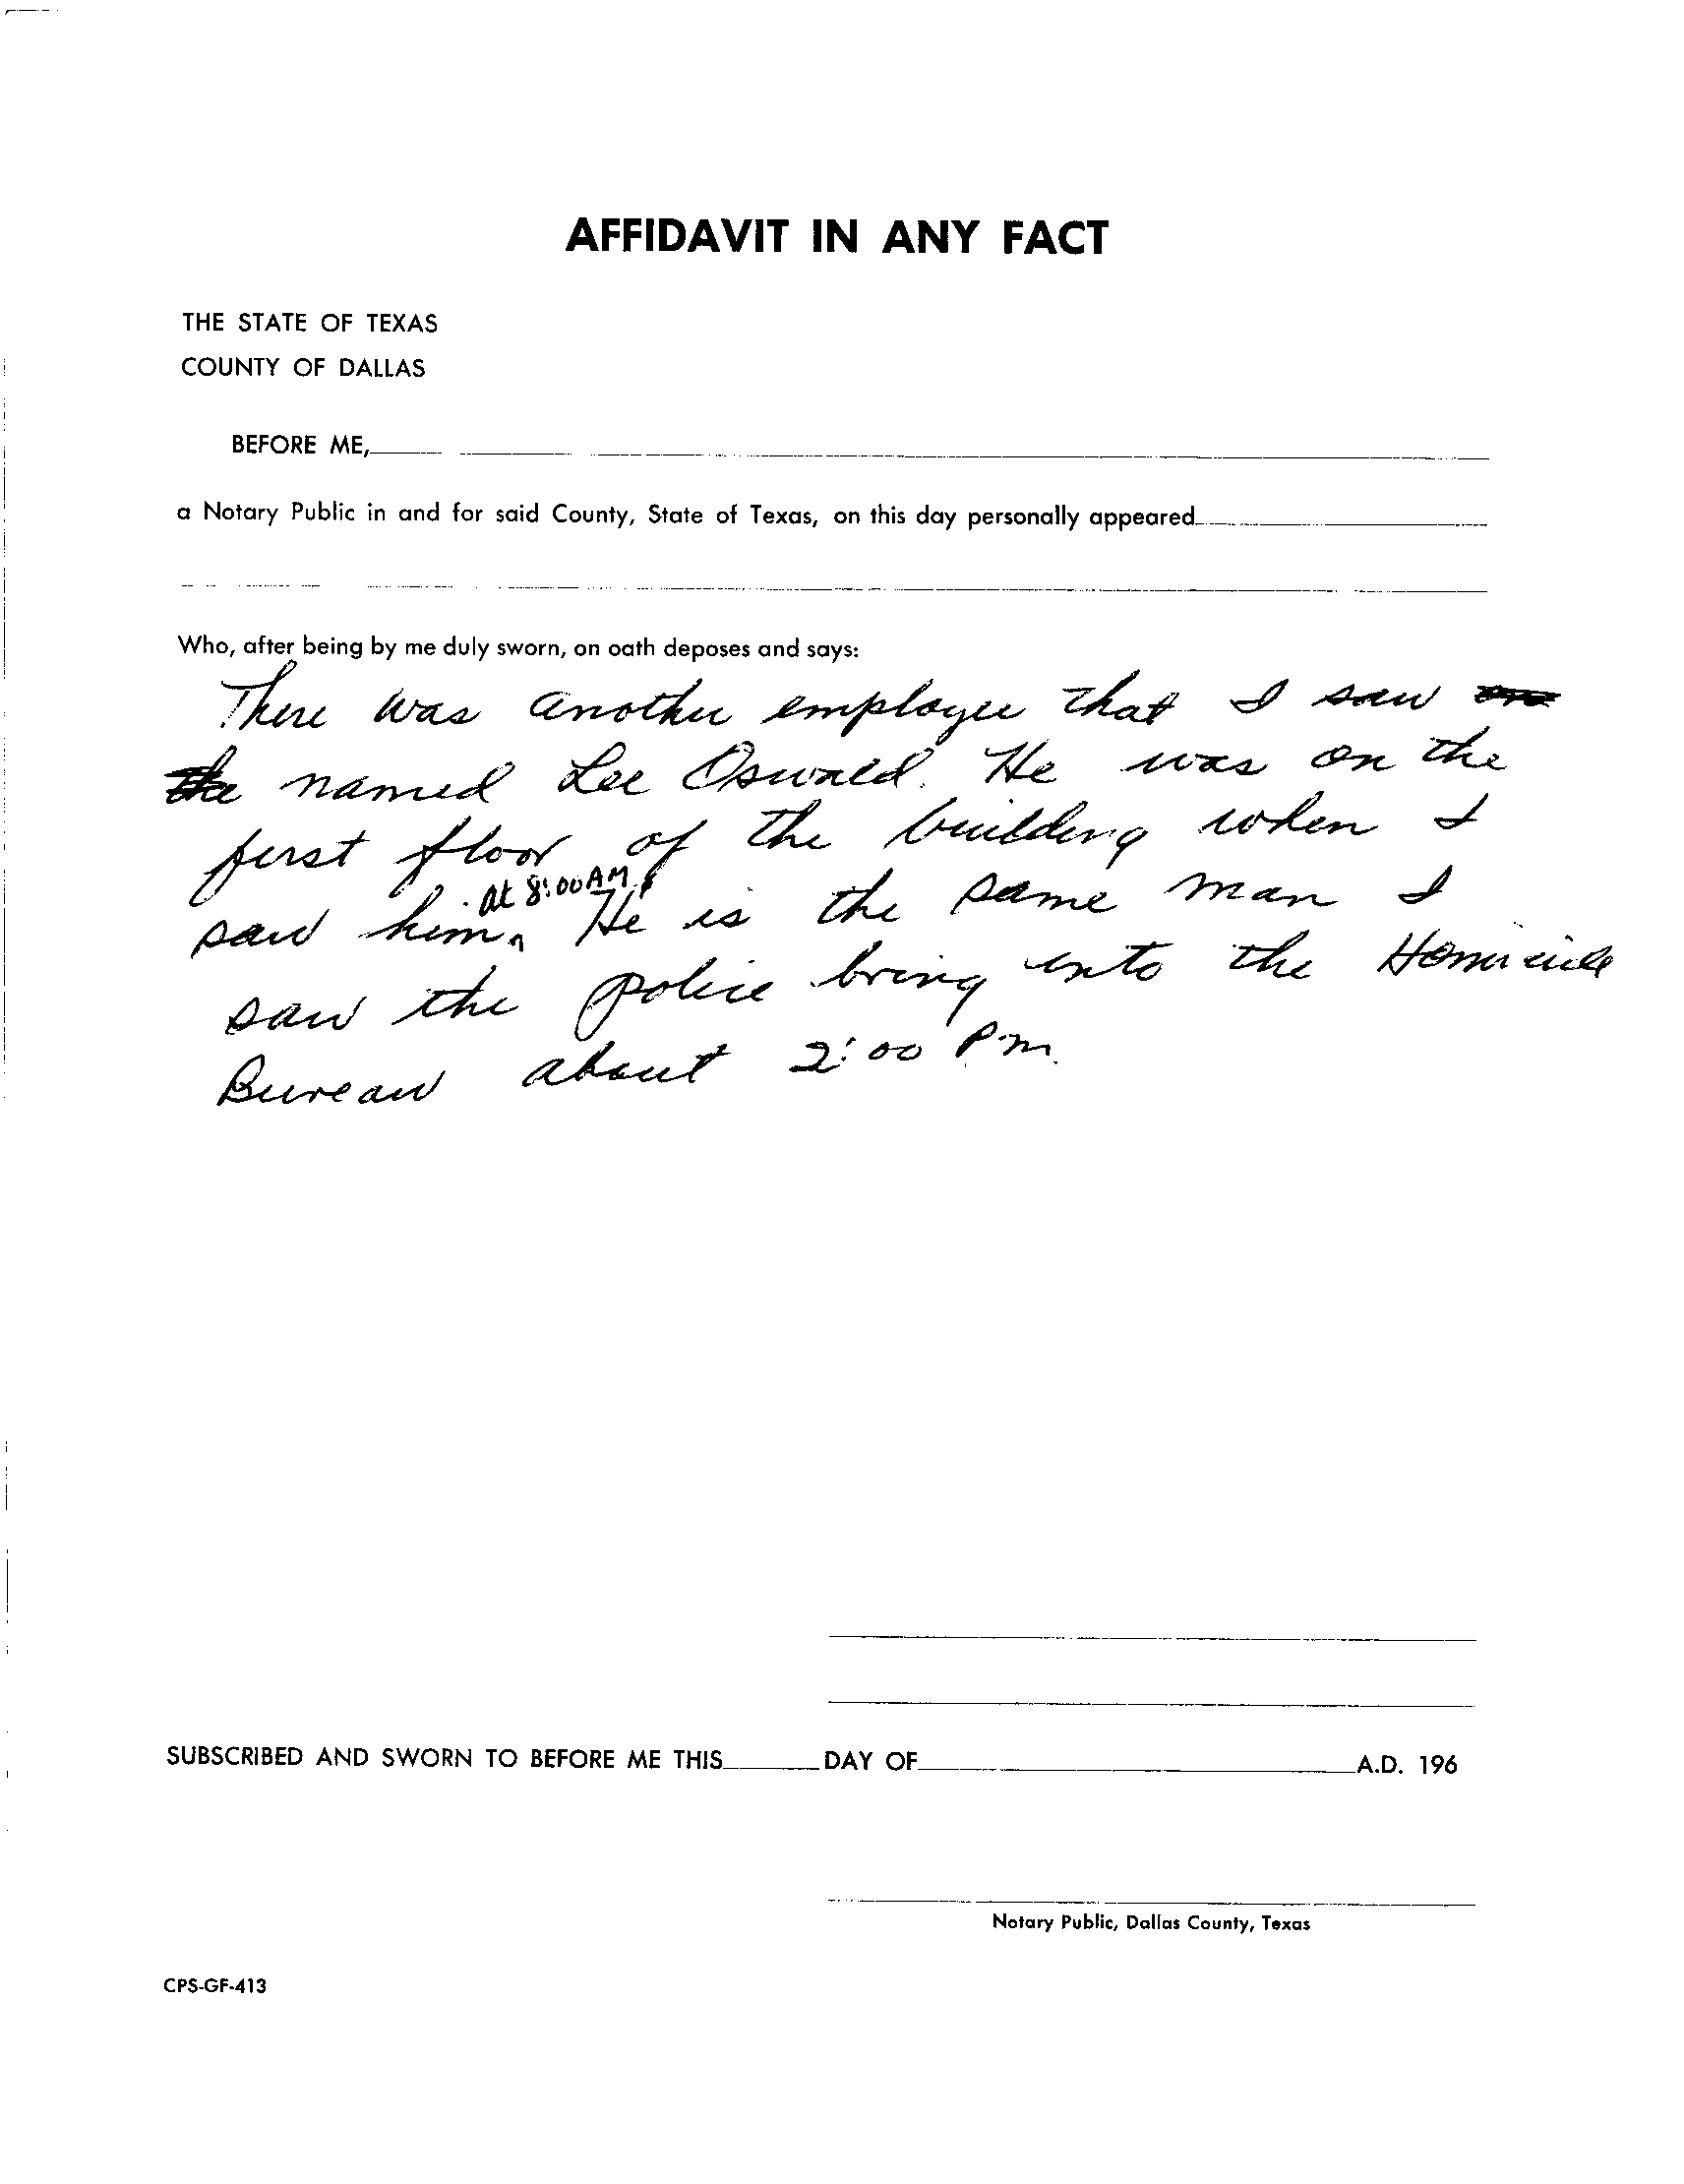 AFFIDAVIT IN ANY FACT
THE STATE OF TEXAS
COUNTY OF DALLAS
BEFORE ME,
a Notary Public in and for said County, State of Texas, on this day personally appeared
Who, after being by me duly sworn, on oath deposes and says:
There was another employee that I saw on
the named Lee Oswald. He was on the
first floor of the building when I
at 8:00 AM.
saw him. He is the same man I
saw the police bring into the Homicide
Bureau about 2:00 P.m.
SUBSCRIBED AND SWORN TO BEFORE ME THIS DAY OF A.D. 196
Notary Public, Dallas County, Texas
CPS-GF-413